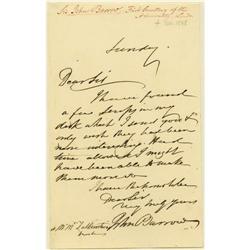 Sir John Barrow, First Secretary of the
Admiralty
Sunday
Dear Sir
I have found
a few scraps in my
desk which I send you &
only wish they had been
more interesting. Had
time allowed I might
have been able to make
them more so.
I have the honor to be
Dear Sir
Very truly yours
John Barrow